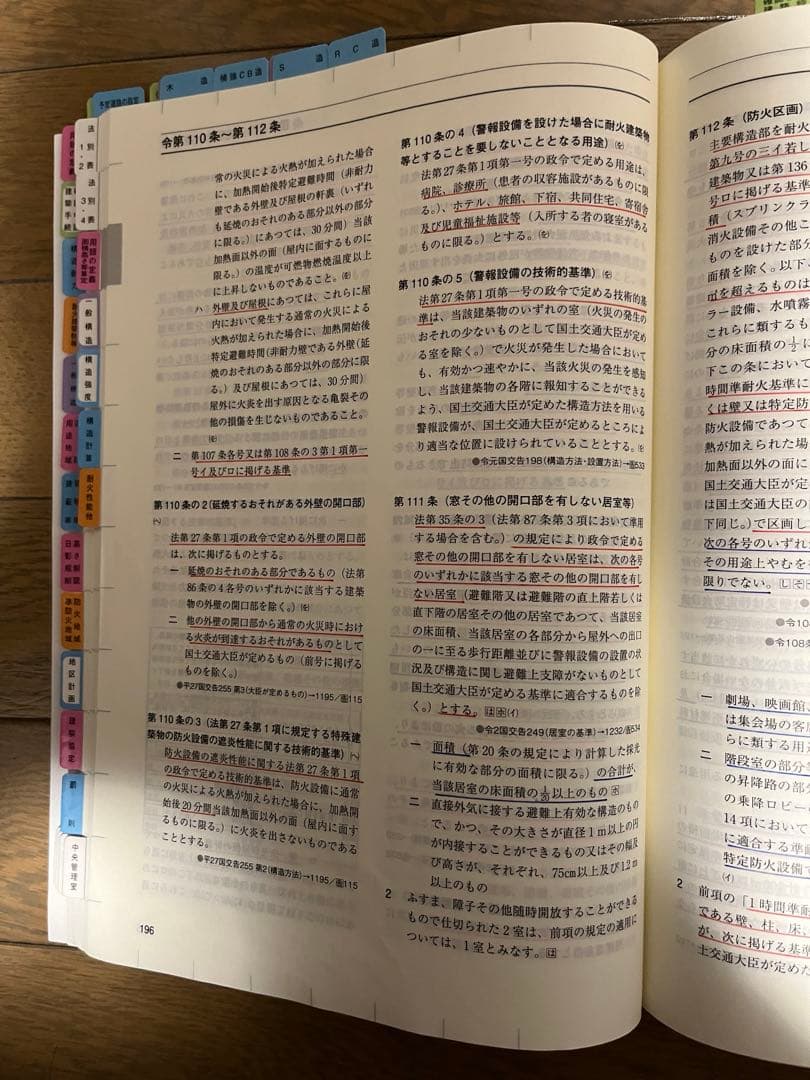 予定道路の指定
木造
補強CB造
S造
RC造
法別表1・2
法別表3・4
用語の定義
面積高さ等算定
一般構造
構造強度
構造計算
耐火性能他
用途地域
日影規制
防火地域
準防火地域
地区計画
建築協定
罰則
中央管理室
令第110条～第112条
常の火災による火熱が加えられた場合
に、加熱開始後特定避難時間（非耐力
壁である外壁及び屋根の軒裏（いずれ
も延焼のおそれのある部分以外の部分
に限る。）にあつては、30分間）当該
加熱面以外の面（屋内に面するものに
限る。）の温度が可燃物燃焼温度以上
に上昇しないものであること。㋾
ハ 外壁及び屋根にあつては、これらに屋
内において発生する通常の火災による
火熱が加えられた場合に、加熱開始後
特定避難時間（非耐力壁である外壁（延
焼のおそれのある部分以外の部分に限
る。）及び屋根にあつては、30分間）
屋外に火炎を出す原因となる亀裂その
他の損傷を生じないものであること。
㋾
二 第107条各号又は第108条の3第1項第一
号イ及びロに掲げる基準
第110条の2（延焼するおそれがある外壁の開口部）
法第27条第1項の政令で定める外壁の開口部
は、次に掲げるものとする。
一 延焼のおそれのある部分であるもの（法第
86条の4各号のいずれかに該当する建築
物の外壁の開口部を除く。）㋾
二 他の外壁の開口部から通常の火災時におけ
る火炎が到達するおそれがあるものとして
国土交通大臣が定めるもの（前号に掲げる
ものを除く。）
●平27国交告255 第3（大臣が定めるもの）→1195／画115
第110条の3（法第27条第1項に規定する特殊建
築物の防火設備の遮炎性能に関する技術的基準）
防火設備の遮炎性能に関する法第27条第1項
の政令で定める技術的基準は、防火設備に通常
の火災による火熱が加えられた場合に、加熱開
始後20分間当該加熱面以外の面（屋内に面す
るものに限る。）に火炎を出さないものである
こととする。
●平27国交告255 第2（構造方法）→1195／画115
196
第110条の4（警報設備を設けた場合に耐火建築物
等とすることを要しないこととなる用途）㋾
法第27条第1項第一号の政令で定める用途は、
病院、診療所（患者の収容施設があるものに限
る。）、ホテル、旅館、下宿、共同住宅、寄宿舎
及び児童福祉施設等（入所する者の寝室がある
ものに限る。）とする。㋾
第110条の5（警報設備の技術的基準）㋾
法第27条第1項第一号の政令で定める技術的基
準は、当該建築物のいずれの室（火災の発生の
おそれの少ないものとして国土交通大臣が定め
る室を除く。）で火災が発生した場合において
も、有効かつ速やかに、当該火災の発生を感知
し、当該建築物の各階に報知することができる
よう、国土交通大臣が定めた構造方法を用いる
警報設備が、国土交通大臣が定めるところによ
り適当な位置に設けられていることとする。㋾
●令元国交告198（構造方法・設置方法）→画533
第111条（窓その他の開口部を有しない居室等）
法第35条の3（法第87条第3項において準用
する場合を含む。）の規定により政令で定める
窓その他の開口部を有しない居室は、次の各号
のいずれかに該当する窓その他の開口部を有し
ない居室（避難階又は避難階の直上階若しくは
直下階の居室その他の居室であつて、当該居室
の床面積、当該居室の各部分から屋外への出口
の一に至る歩行距離並びに警報設備の設置の状
況及び構造に関し避難上支障がないものとして
国土交通大臣が定める基準に適合するものを除
く。）とする。
●令2国交告249（居室の基準）→1232／画534
一 面積（第20条の規定により計算した採光
に有効な部分の面積に限る。）の合計が、
当該居室の床面積の1/20以上のもの
二 直接外気に接する避難上有効な構造のもの
で、かつ、その大きさが直径1m以上の円
が内接することができるもの又はその幅及
び高さが、それぞれ、75cm以上及び1.2m
以上のもの
2 ふすま、障子その他随時開放することができる
もので仕切られた2室は、前項の規定の適用に
ついては、1室とみなす。
第112条（防火区画）
主要構造部を耐火
第九号の三イ若し
建築物又は第136
号ロに掲げる基準
積（スプリンクラ
消火設備その他こ
ものを設けた部分
面積を除く。以下、
㎡を超えるものは
ラー設備、水噴霧
これらに類するも
分の床面積の1/2に
下この条において
時間準耐火基準に
くは壁又は特定防
防火設備であつて
熱が加えられた場
加熱面以外の面に
は国土交通大臣の
下同じ。）で区画し
次の各号のいずれ
その用途上やむを
限りでない。
●令108
一 劇場、映画館、
は集会場の客
らに類する用
二 階段室の部分
の昇降路の部
の乗降ロビー
14項において
に適合する準
特定防火設備で
（イ）
2 前項の「1時間準
である壁、柱、床、
が、次に掲げる基準
土交通大臣が定め